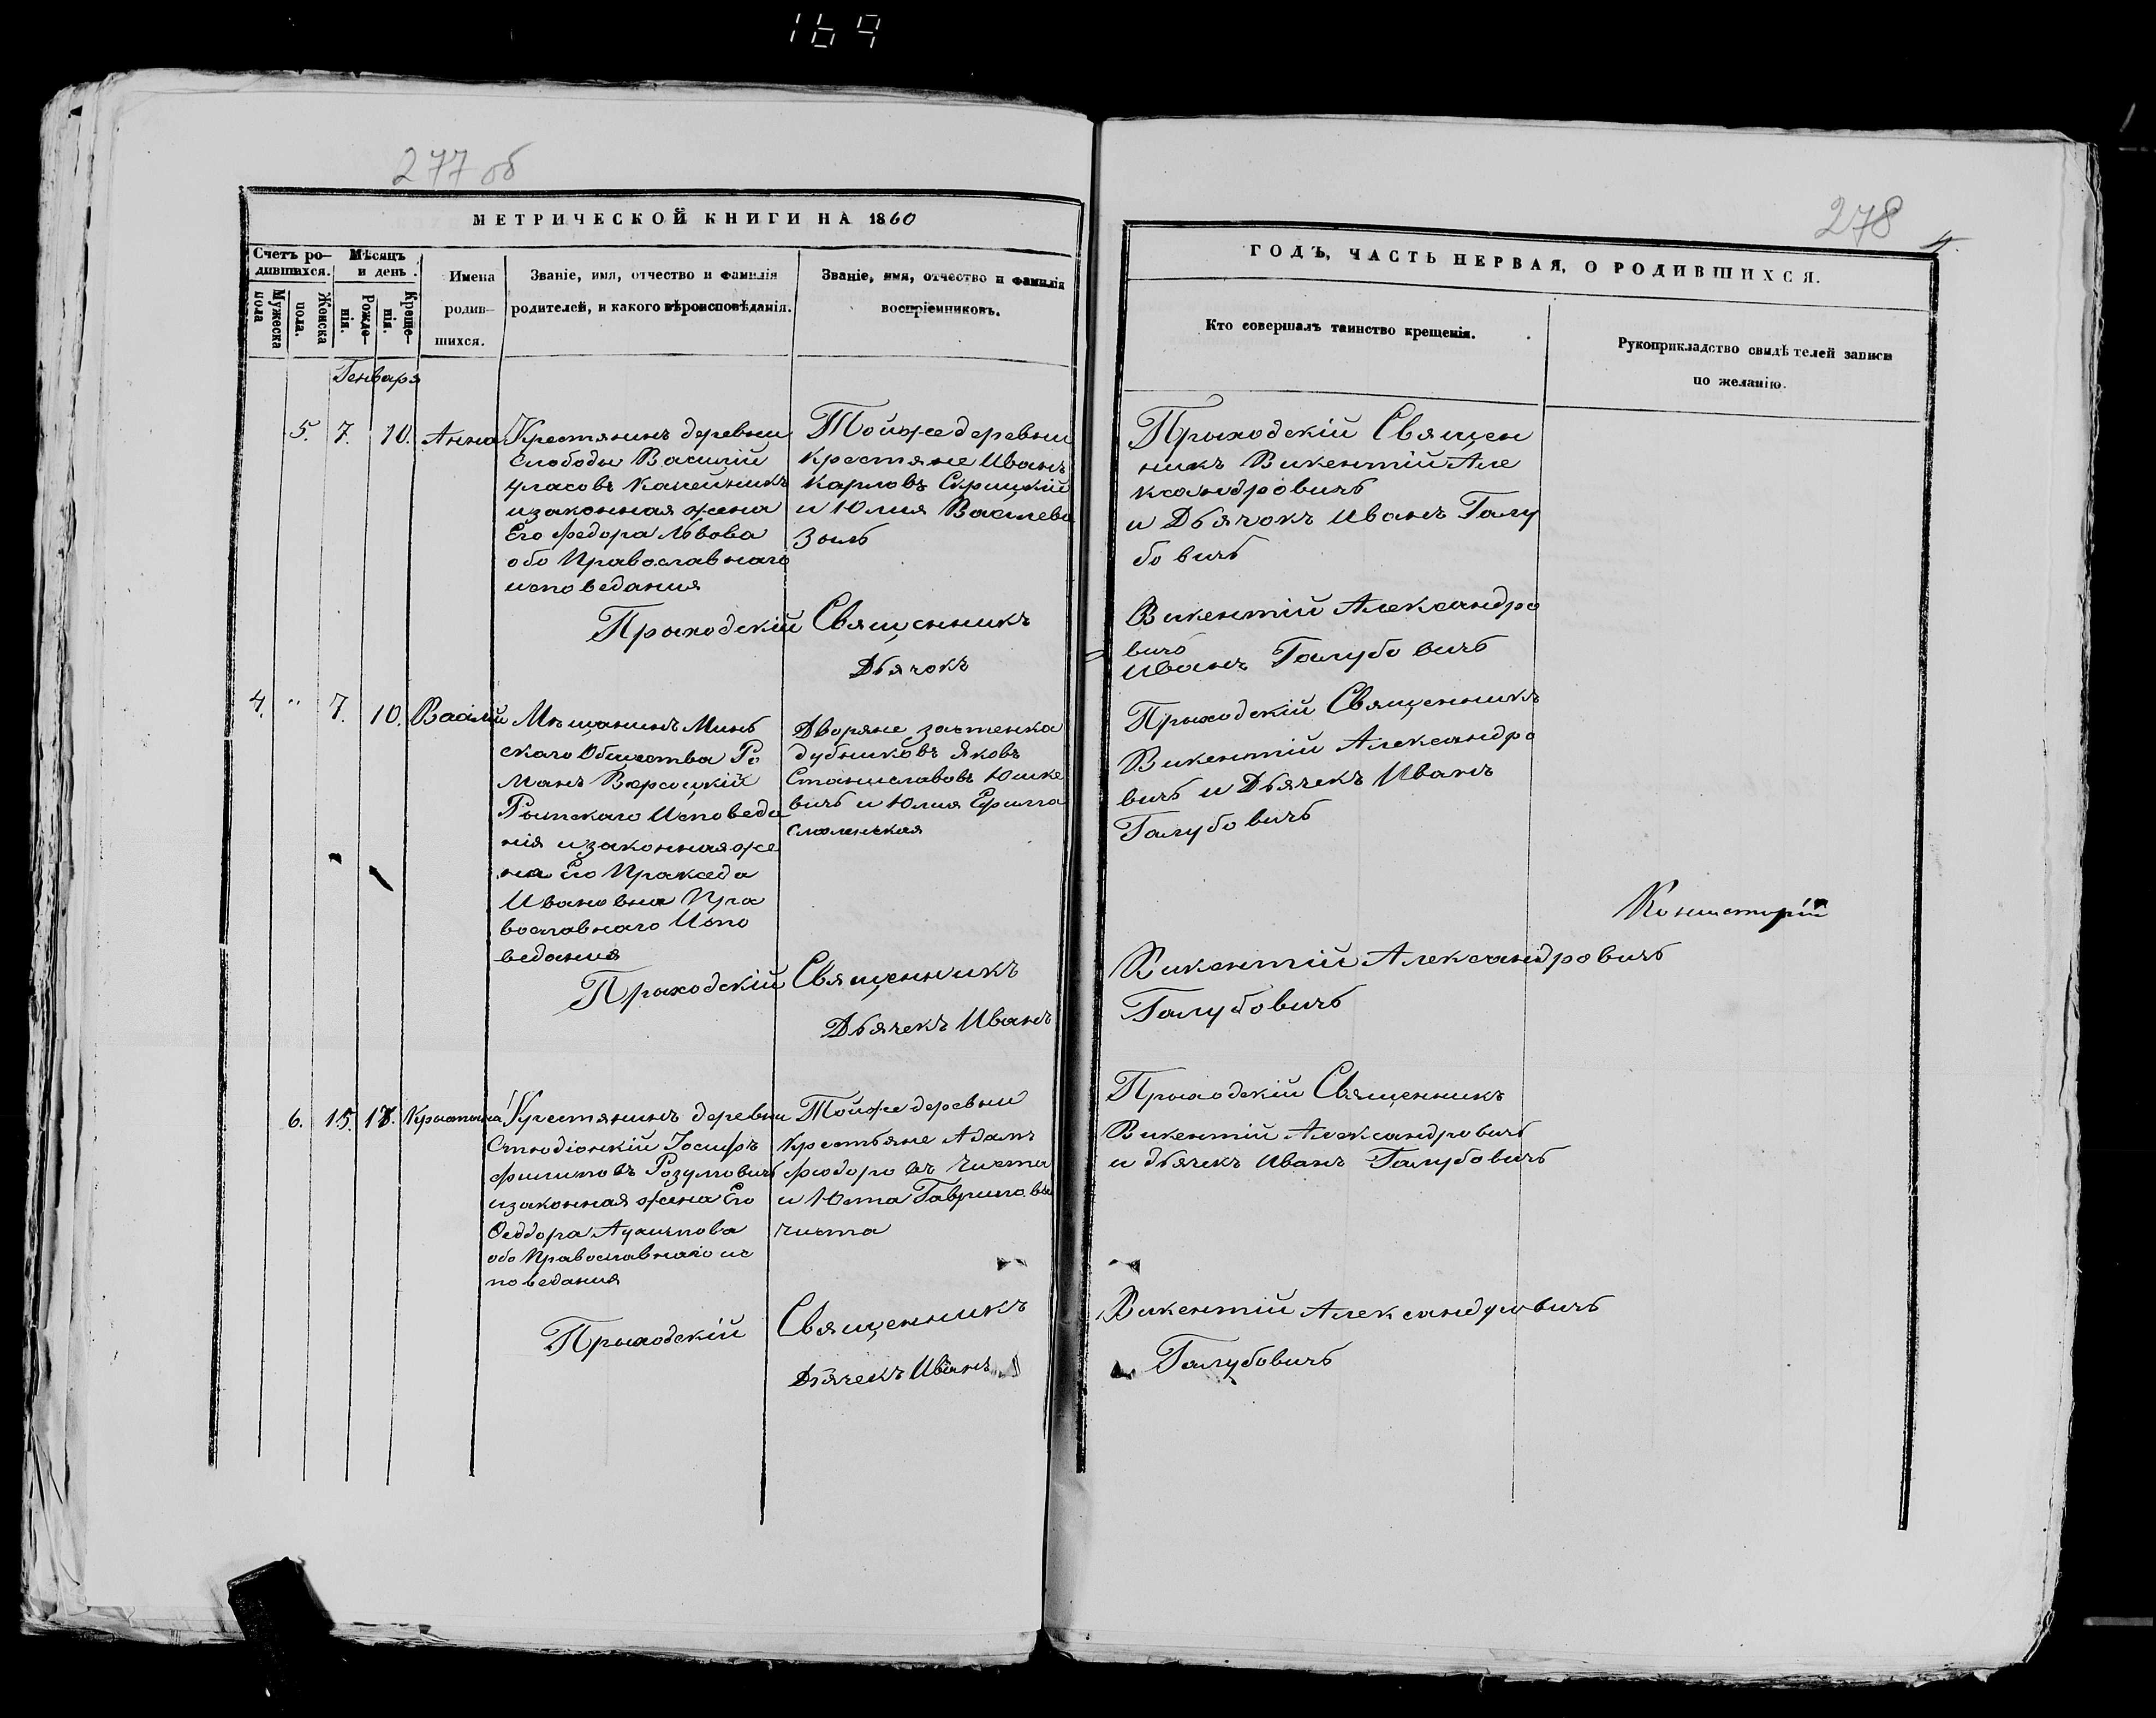 169
277 об
МЕТРИЧЕСКОЙ КНИГИ НА 1860
Счетъ ро–
дившихся.
Мѣсяцъ
и день.
Мужеска
пола
Женска
пола.
Рожде–
нія.
Креще–
нія.
Имена
родив–
шихся.
Званіе, имя, отчество и фамилія
родителей, и какого вѣроисповѣданія.
Званіе, имя, отчество и фамилія
воспріемниковъ.
Генваря
5. 7. 10. Анна
Крестянинъ деревни
Слободы Василій
изаконная жена
Его Федора Львова
обо Православнаго
исповедания
Тойже деревни
крестяне Иванъ
Карловъ
и Юлия Василева
Зыль
Приходскій Священникъ
Дьячокъ
4. " 7. 10. Васлій
Мѣщанинъ Минь
скаго Общества Ро
манъ
Римскаго Исповеда
нія изаконная же
на Его Пракседа
Ивановна Пра
вославнаго Испо
ведания
Дворяне застенка
дубниковъ Яковъ
Станиславовъ Юшке
вичь и Юлия
Смоленская
Приходскій Священникъ
Дьячекъ Иванъ
6. 15. 17. Крыстына
Крестянинъ деревни
Іосифъ
филиповъ Розумовичь
изаконная жена Его
обо Православнаго ис
поведания
Тойже деревни
Крестьяне Адамъ
Федоровъ Чиста
и Юста Гаврилова
Чиста
Приходскій Священникъ
Дьячекъ Иванъ
278
4.
ГОДЪ, ЧАСТЬ ПЕРВАЯ, О РОДИВШИХСЯ.
Кто совершалъ таинство крещенія.
Рукоприкладство свидѣтелей записи
по желанію.
Приходскій Священ
никъ Викентій Але
ксандровичь
и Дьячокъ Иванъ Галу
бовичь
Викентій Александро
вичь
Иванъ Галубовичь
Приходскій Священникъ
Викентій Александро
вичь и Дьячекъ Иванъ
Галубовичь
Консисторіи
Викентій Александровичь
Галубовичь
Приходскій Священникъ
Викентій Александровичь
и дьячекъ Иванъ Галубовичь
Викентій Александровичь
Галубовичь